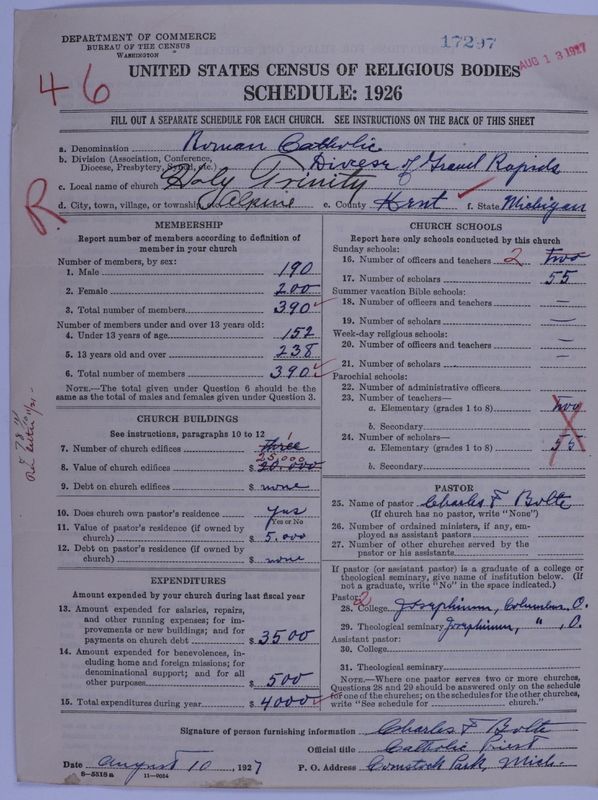 DEPARTMENT OF COMMERCE
BUREAU OF THE CENSUS
WASHINGTON
17297
AUG 13 1927
46
UNITED STATES CENSUS OF RELIGIOUS BODIES
SCHEDULE: 1926
FILL OUT A SEPARATE SCHEDULE FOR EACH CHURCH. SEE INSTRUCTIONS ON THE BACK OF THIS SHEET
a. Denomination Roman Catholic
b. Division (Association, Conference, Diocese, Presbytery, Synod, etc.) Diocese of Grand Rapids
c. Local name of church Holy Trinity
R.
d. City, town, village, or township Alpine e. County Kent f. State Michigan
MEMBERSHIP
Report number of members according to definition of member in your church
Number of members, by sex:
1. Male 190
2. Female 200
3. Total number of members 390
Number of members under and over 13 years old:
4. Under 13 years of age 152
5. 13 years old and over 238
6. Total number of members 390
NOTE.—The total given under Question 6 should be the same as the total of males and females given under Question 3.
CHURCH BUILDINGS
See instructions, paragraphs 10 to 12
7. Number of church edifices three 1
25,000
8. Value of church edifices $ 20.000
9. Debt on church edifices $ none
10. Does church own pastor's residence? yes
Yes or No
11. Value of pastor's residence (if owned by church) $ 5.000
12. Debt on pastor's residence (if owned by church) $ none
EXPENDITURES
Amount expended by your church during last fiscal year
13. Amount expended for salaries, repairs, and other running expenses; for improvements or new buildings; and for payments on church debt $ 3500
14. Amount expended for benevolences, including home and foreign missions; for denominational support; and for all other purposes $ 500
15. Total expenditures during year $ 4000
CHURCH SCHOOLS
Report here only schools conducted by this church
Sunday schools:
16. Number of officers and teachers 2 two
17. Number of scholars 55
Summer vacation Bible schools:
18. Number of officers and teachers —
19. Number of scholars —
Week-day religious schools:
20. Number of officers and teachers —
21. Number of scholars —
Parochial schools:
22. Number of administrative officers
23. Number of teachers—
a. Elementary (grades 1 to 8) two
b. Secondary
24. Number of scholars—
a. Elementary (grades 1 to 8) 55
b. Secondary
PASTOR
25. Name of pastor Charles F Bolte
(If church has no pastor, write "None")
26. Number of ordained ministers, if any, employed as assistant pastors
27. Number of other churches served by the pastor or his assistants
If pastor (or assistant pastor) is a graduate of a college or theological seminary, give name of institution below. (If not a graduate, write "No" in the space indicated.)
Pastor: 2
28. College Josephinum, Columbus, O.
29. Theological seminary Josephinum, " , O.
Assistant pastor:
30. College
31. Theological seminary
NOTE.—Where one pastor serves two or more churches, Questions 28 and 29 should be answered only on the schedule for one of the churches; on the schedules for the other churches, write "See schedule for church."
Signature of person furnishing information Charles F Bolte
Official title Catholic Priest
Date August 10, 1927 P. O. Address Comstock Park, Mich.
8—5518a 11—9034